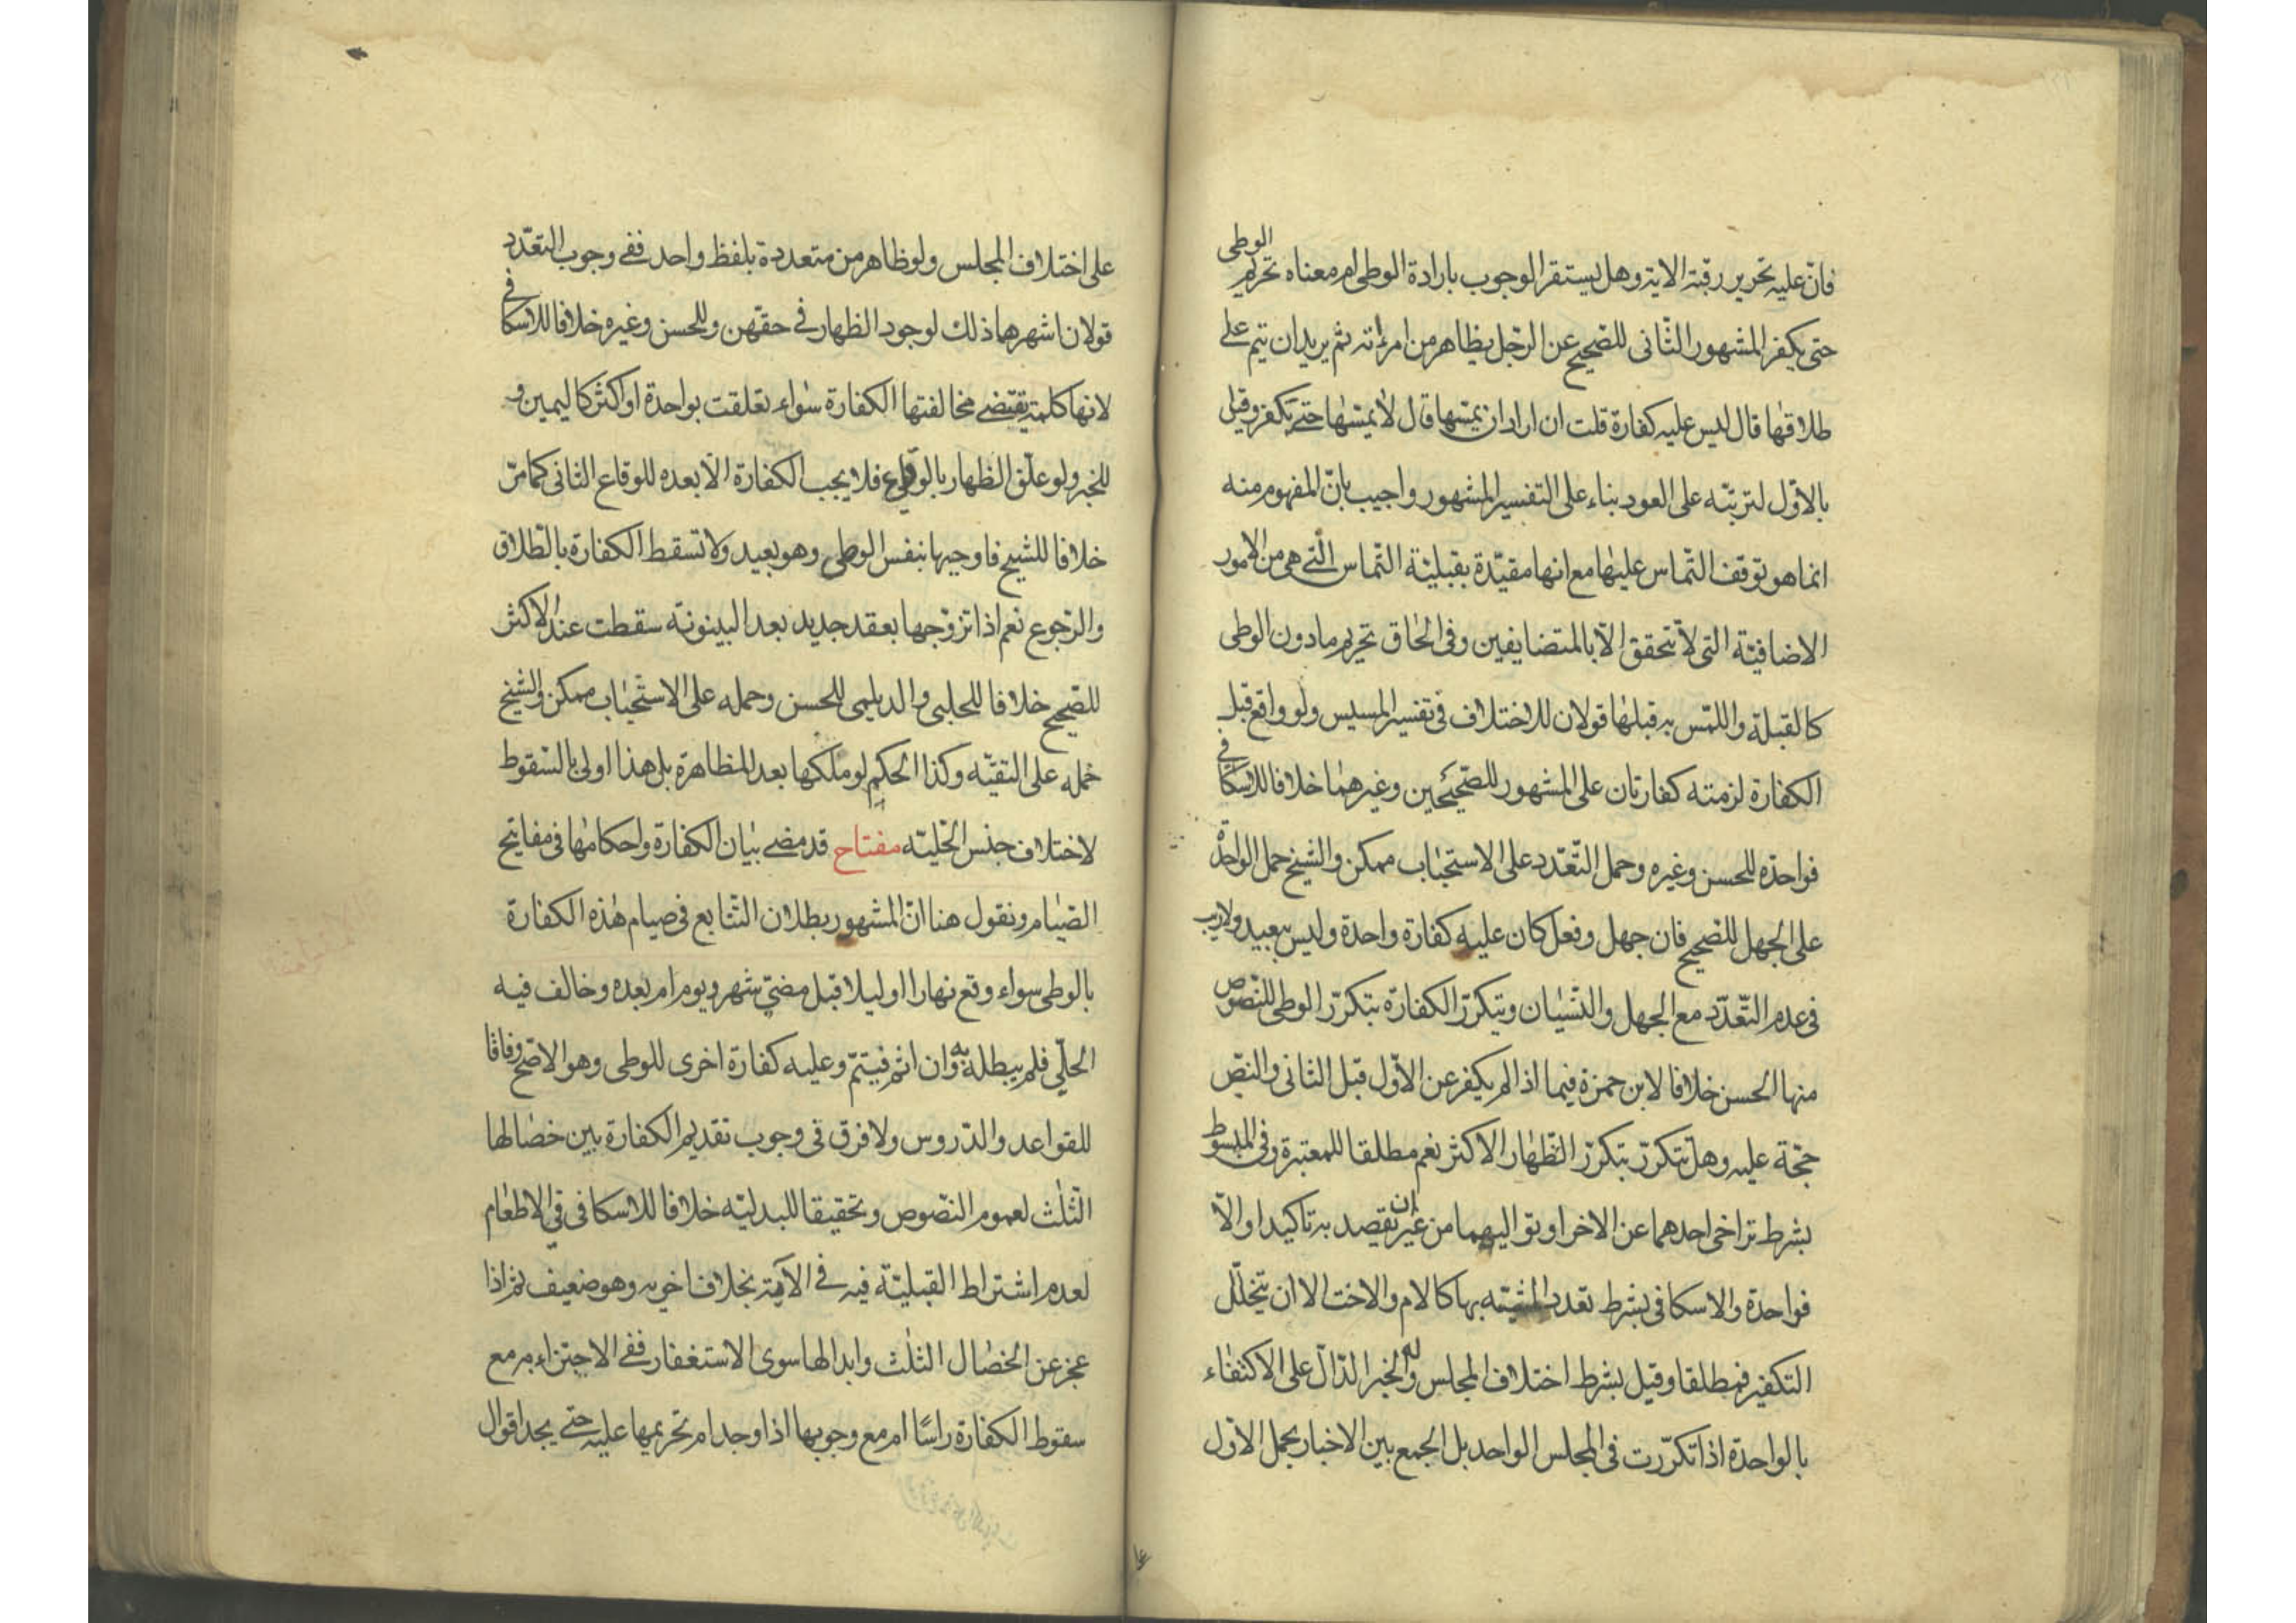 فانّ عليه تحرير رقبة الاية وهل يستقر الوجوب بارادة الوطى ام معناه تحريم الوطى
حتى يكفر المشهور الثّانى للصّحيح عن الرّجل يظاهر من امرأته ثم يريدان يتم على
طلاقها قال ليس عليه كفارة قلت ان اراد ان يمسّها قال لا يمسّها حتى يكفر وقيل
بالاوّل لترتبّه على العود بناء على التفسير المشهور واجيب بانّ المفهوم منه
انما هو توقف التّماس عليها مع انها مقيّدة بقبليّة التّماس الّتي هى من الامور
الاضافيّة التى لا تتحقق الّا بالمتضايفين وفى الحاق تحريم مادون الوطى
كالقبلة واللمس به قبلها قولان للاختلاف فى تفسير المسيس ولو واقع قبل
الكفارة لزمته كفارتان على المشهور للصّحيحين وغيرهما خلافا للاسكافى
فواحدة للحسن وغيره وحمل التّعدّد على الاستحباب ممكن والشيخ حمل الواحدة
على الجهل للصّحيح فان جهل وفعل كان عليه كفارة واحدة وليس ببعيد ولا ريب
فى عدم التّعدّد مع الجهل والنّسيان وتتكرّر الكفارة بتكرّر الوطى للنّصوص
منها الحسن خلافا لابن حمزة فيما اذا لم يكفر عن الاوّل قبل الثانى والنصّ
حجّة عليه وهل تتكرّر بتكرّر الظّهار الاكثر نعم مطلقا للمعتبرة وفى المبسوط
بشرط تراخى احدهما عن الاخر او تواليهما من غير ان يقصد به تاكيدا والّا
فواحدة والاسكافى بشرط تعدد المشبّه بها كالام والاخت الا ان يتخلّل
التكفير فمطلقا وقيل بشرط اختلاف المجلس وله الخبر الدّال على الاكتفاء
بالواحدة اذا تكرّرت فى المجلس الواحد بل الجمع بين الاخبار بحمل الاول
على اختلاف المجلس ولو ظاهر من متعددة بلفظ واحد ففى وجوب التعدّد
قولان اشهرهما ذلك لوجود الظهار فى حقهن وللحسن وغيره خلافا للاسكافى
لانها كلمة يقتضى مخالفتها الكفارة سواء تعلقت بواحدة او اكثر كاليمين و
للخبر ولو علّق الظهار بالوقاع فلا يجب الكفارة الّا بعده للوقاع الثانى كما مرّ
خلافا للشيخ فاوجبها بنفس الوطى وهو بعيد ولا تسقط الكفارة بالطّلاق
والرّجوع نعم اذا تزوّجها بعقد جديد بعد البينونة سقطت عند الاكثر
للصّحيح خلافا للحلبى والديلمى للحسن وحمله على الاستحباب ممكن والشيخ
حمله على التقيّه وكذا الحكم لو ملكها بعد المظاهرة بل هذا اولى بالسّقوط
لاختلاف جنس الحليّه مفتاح قد مضى بيان الكفارة واحكامها فى مفاتيح
الصّيام ونقول هنا انّ المشهور بطلان التّتابع فى صيام هذه الكفارة
بالوطى سواء وقع نهارا او ليلا قبل مضىّ شهر ويوم ام بعده وخالف فيه
الحلّى فلم يبطله به وان اثم فيتمّ وعليه كفارة اخرى للوطى وهو الاصّح وفاقا
للقواعد والدّروس ولا فرق فى وجوب تقديم الكفارة بين خصالها
الثّلث لعموم النّصوص وتحقيقا للبدليّه خلافا للاسكافى فى الاطعام
لعدم اشتراط القبليّة فيه فى الآية بخلاف اخويه وهو ضعيف ثم اذا
عجز عن الخصال الثلث وابدالها سوى الاستغفار ففى الاجتزاء به مع
سقوط الكفارة راسًا ام مع وجوبها اذا وجد ام تحريمها عليه حتى يجد اقوال